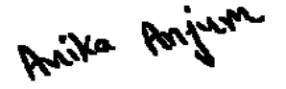 Anika Anjum